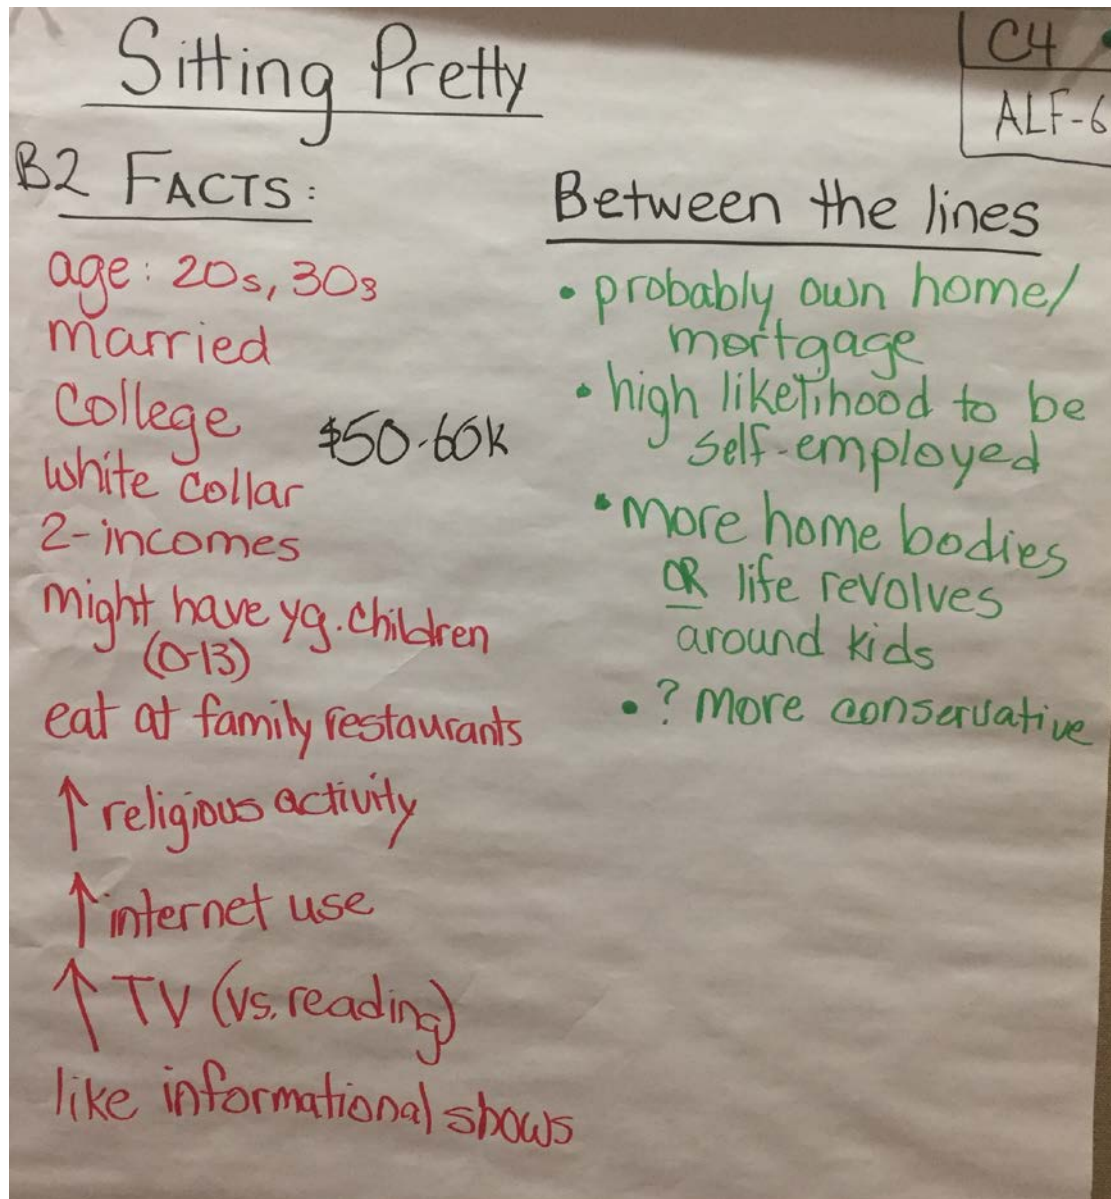 Sitting Pretty
C4
ALF-6
B2 FACTS:
age: 20s, 30s
married
College
$50-60K
white collar
2-incomes
might have yg. children
(0-13)
eat at family restaurants
↑ religious activity
↑ internet use
↑ TV (vs. reading)
like informational shows
Between the lines
• probably own home/
mortgage
• high likelihood to be
self-employed
• more home bodies
OR life revolves
around kids
• ? more conservative